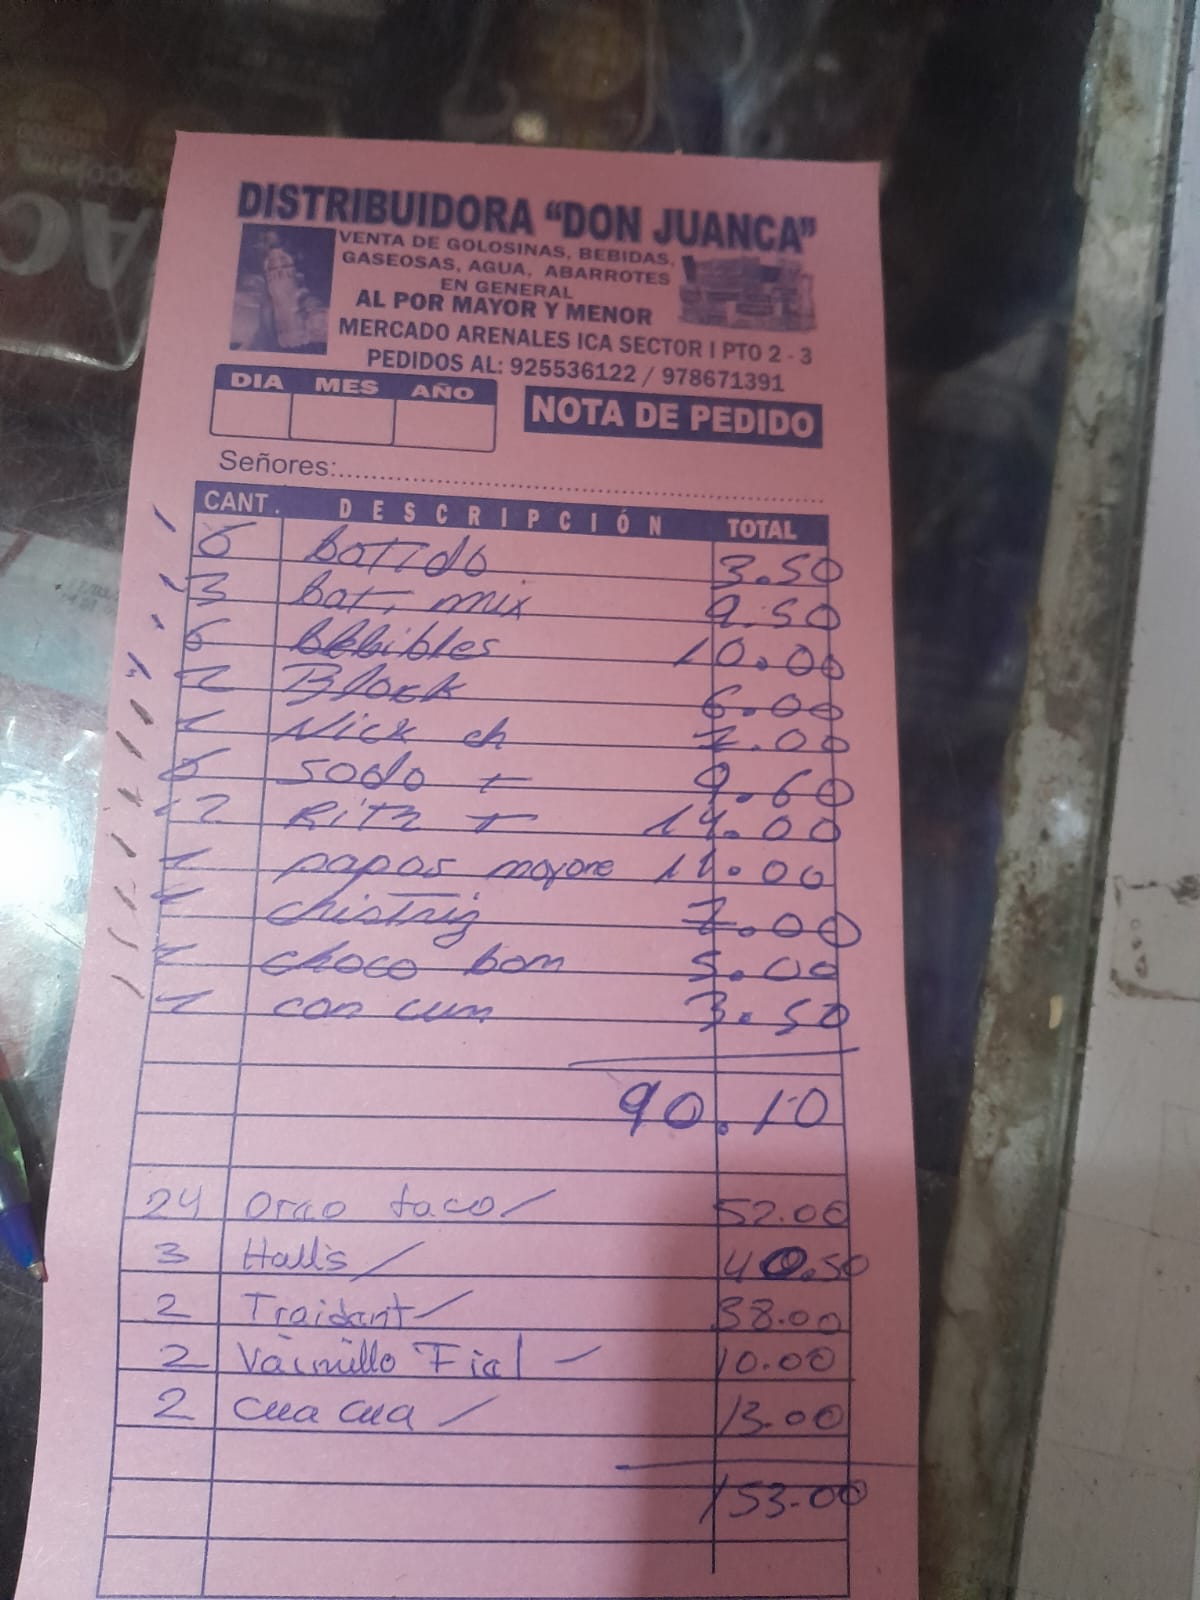 DISTRIBUIDORA “DON JUANCA”
VENTA DE GOLOSINAS, BEBIDAS,
GASEOSAS, AGUA, ABARROTES
EN GENERAL
AL POR MAYOR Y MENOR
MERCADO ARENALES ICA SECTOR I PTO 2 - 3
PEDIDOS AL: 925536122 / 978671391
DIA MES AÑO
NOTA DE PEDIDO
Señores:
CANT. DESCRIPCIÓN TOTAL
6 batido 3.50
3 bat. mix 9.50
6 bebibles 10.00
2 Block 6.00
1 Nick ch 7.00
6 soda 9.60
2 Ritz 14.00
1 papas mayore 11.00
1 chistriz 7.00
1 choco bom 5.00
1 can cun 3.50
90.10
24 Oreo taco / 52.00
3 Halls / 40.50
2 Traidant / 38.00
2 Vainillo Fiel 10.00
2 cua cua / 13.00
153.00